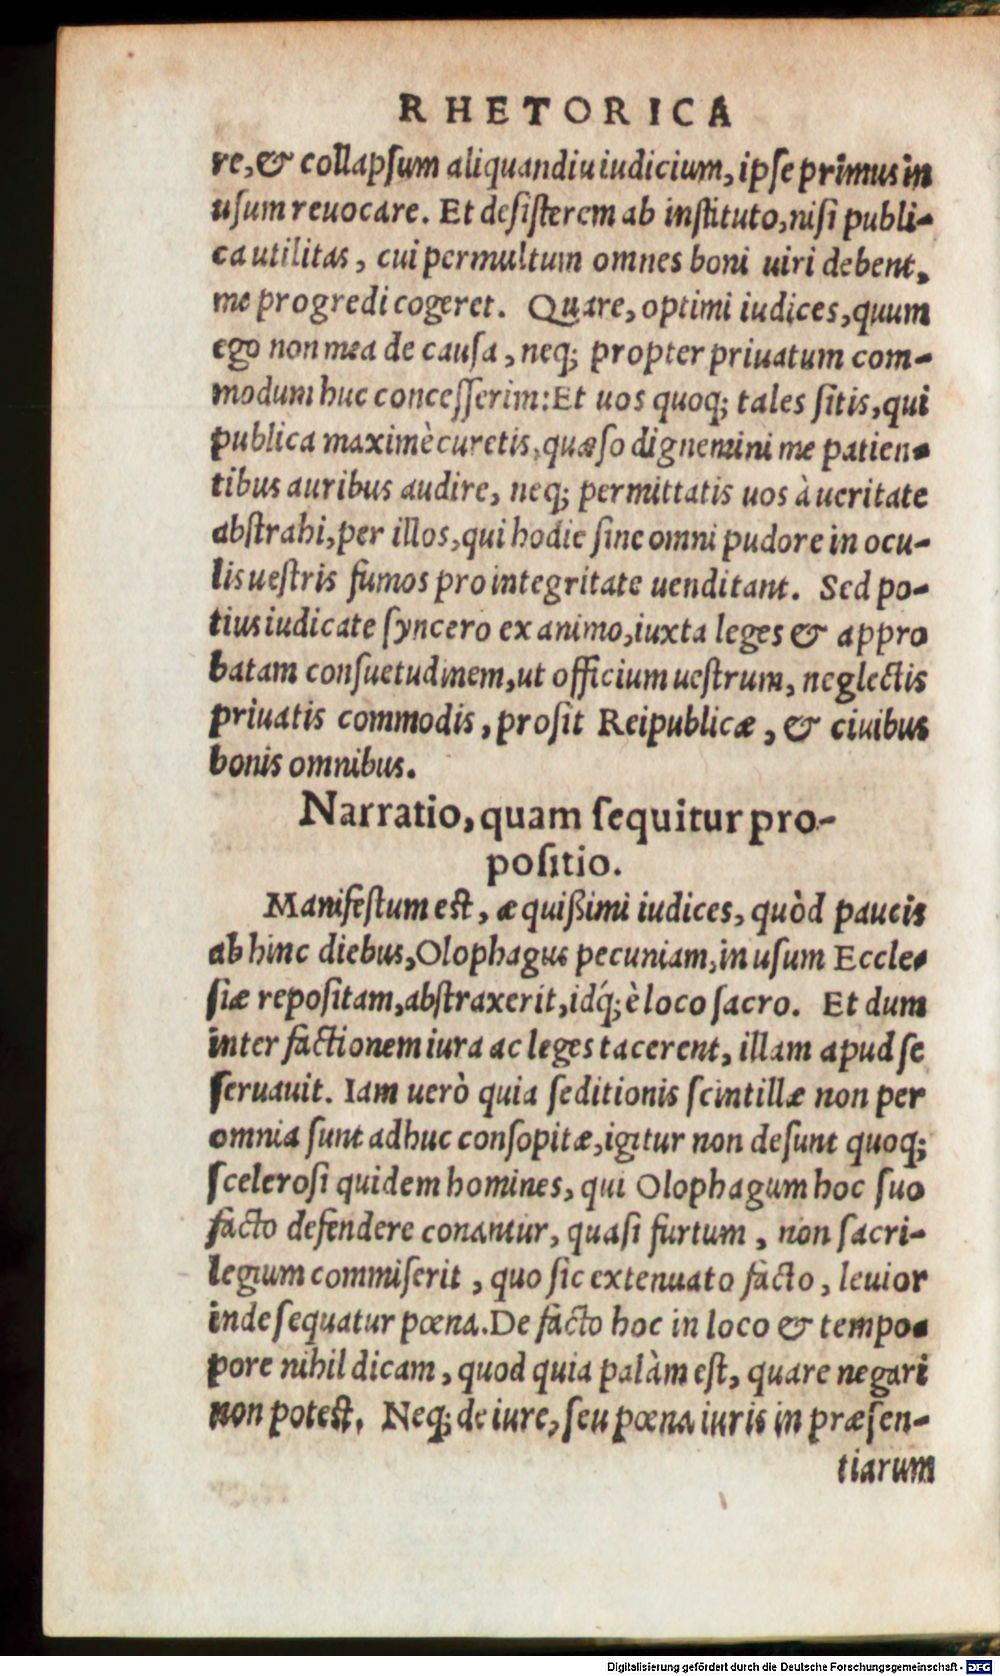 RHETORICA
re, & collapſum aliquandiu iudicium, ipſe primus in
uſum reuocare. Et deſiſterem ab inſtituto, niſi publi-
ca utilitas, cui permultum omnes boni uiri debent,
me progredi cogeret. Quare, optimi iudices, quum
ego non mea de cauſa, neq; propter priuatum com-
modum huc conceſſerim: Et uos quoq; tales ſitis, qui
publica maximè curetis, quæſo dignemini me patien-
tibus auribus audire, neq; permittatis uos à ueritate
abſtrahi, per illos, qui hodie ſine omni pudore in ocu-
lis ueſtris fumos pro integritate uenditant. Sed po-
tius iudicate ſyncero ex animo, iuxta leges & appro
batam conſuetudinem, ut officium ueſtrum, neglectis
priuatis commodis, proſit Reipublicæ, & ciuibus
bonis omnibus.
Narratio, quam ſequitur pro-
poſitio.
Manifeſtum eſt, æquißimi iudices, quòd paucis
ab hinc diebus, Olophagus pecuniam, in uſum Eccle-
ſiæ repoſitam, abſtraxerit, idq́; è loco ſacro. Et dum
inter factionem iura ac leges tacerent, illam apud ſe
ſeruauit. Iam uerò quia ſeditionis ſcintillæ non per
omnia ſunt adhuc conſopitæ, igitur non deſunt quoq;
ſceleroſi quidem homines, qui Olophagum hoc ſuo
facto defendere conantur, quaſi furtum, non ſacri-
legium commiſerit, quo ſic extenuato facto, leuior
inde ſequatur pœna. De facto hoc in loco & tempo-
pore nihil dicam, quod quia palàm eſt, quare negari
non poteſt. Neq; de iure, ſeu pœna iuris in præſen-
tiarum
Digitalisierung gefördert durch die Deutsche Forschungsgemeinschaft - DFG